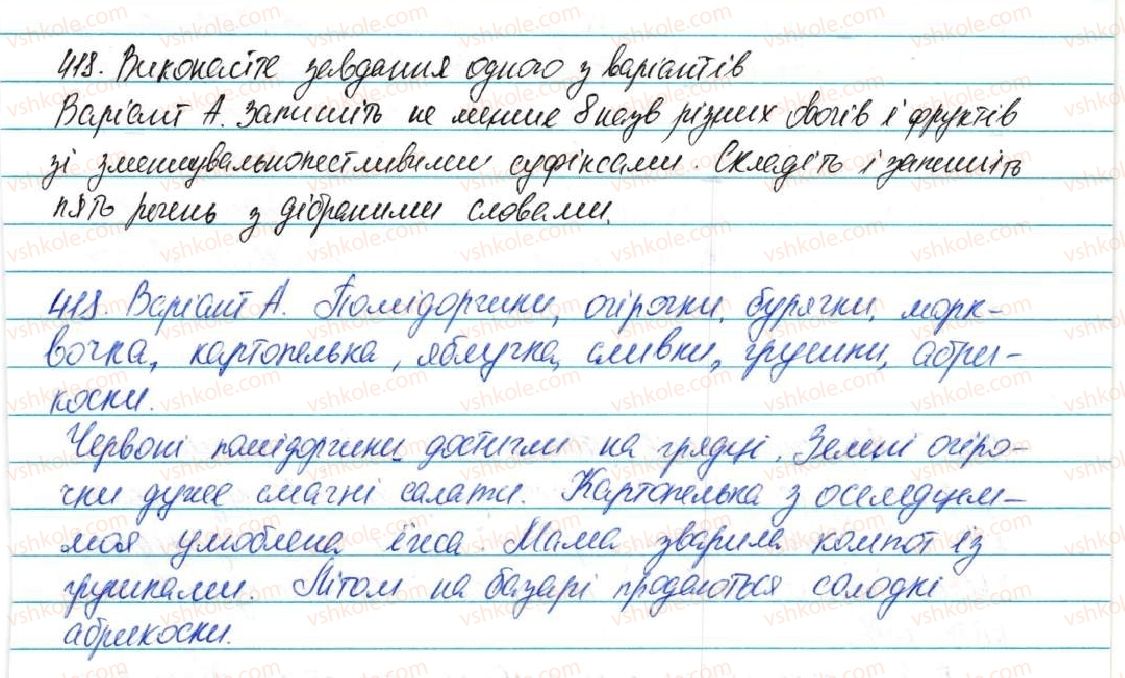 418. Виконайте завдання одного з варіантів
Варіант А. Запишіть не менше 8 назв різних овочів і фруктів
зі зменшувальнопестливими суфіксами. Складіть і запишіть
п'ять речень з дібраними словами.
418. Варіант А. Помідорчики, огірочки, бурячки, морк-
вочка, картопелька, яблучка, сливки, грушки, абри-
коски.
Червоні помідорчики достигли на грядці. Зелені огіро-
чки дуже смачні салати. Картопелька з оселедцем-
моя улюблена їжа. Мама зварила компот із
грушками. Літом на базарі продаються солодкі
абрикоски.